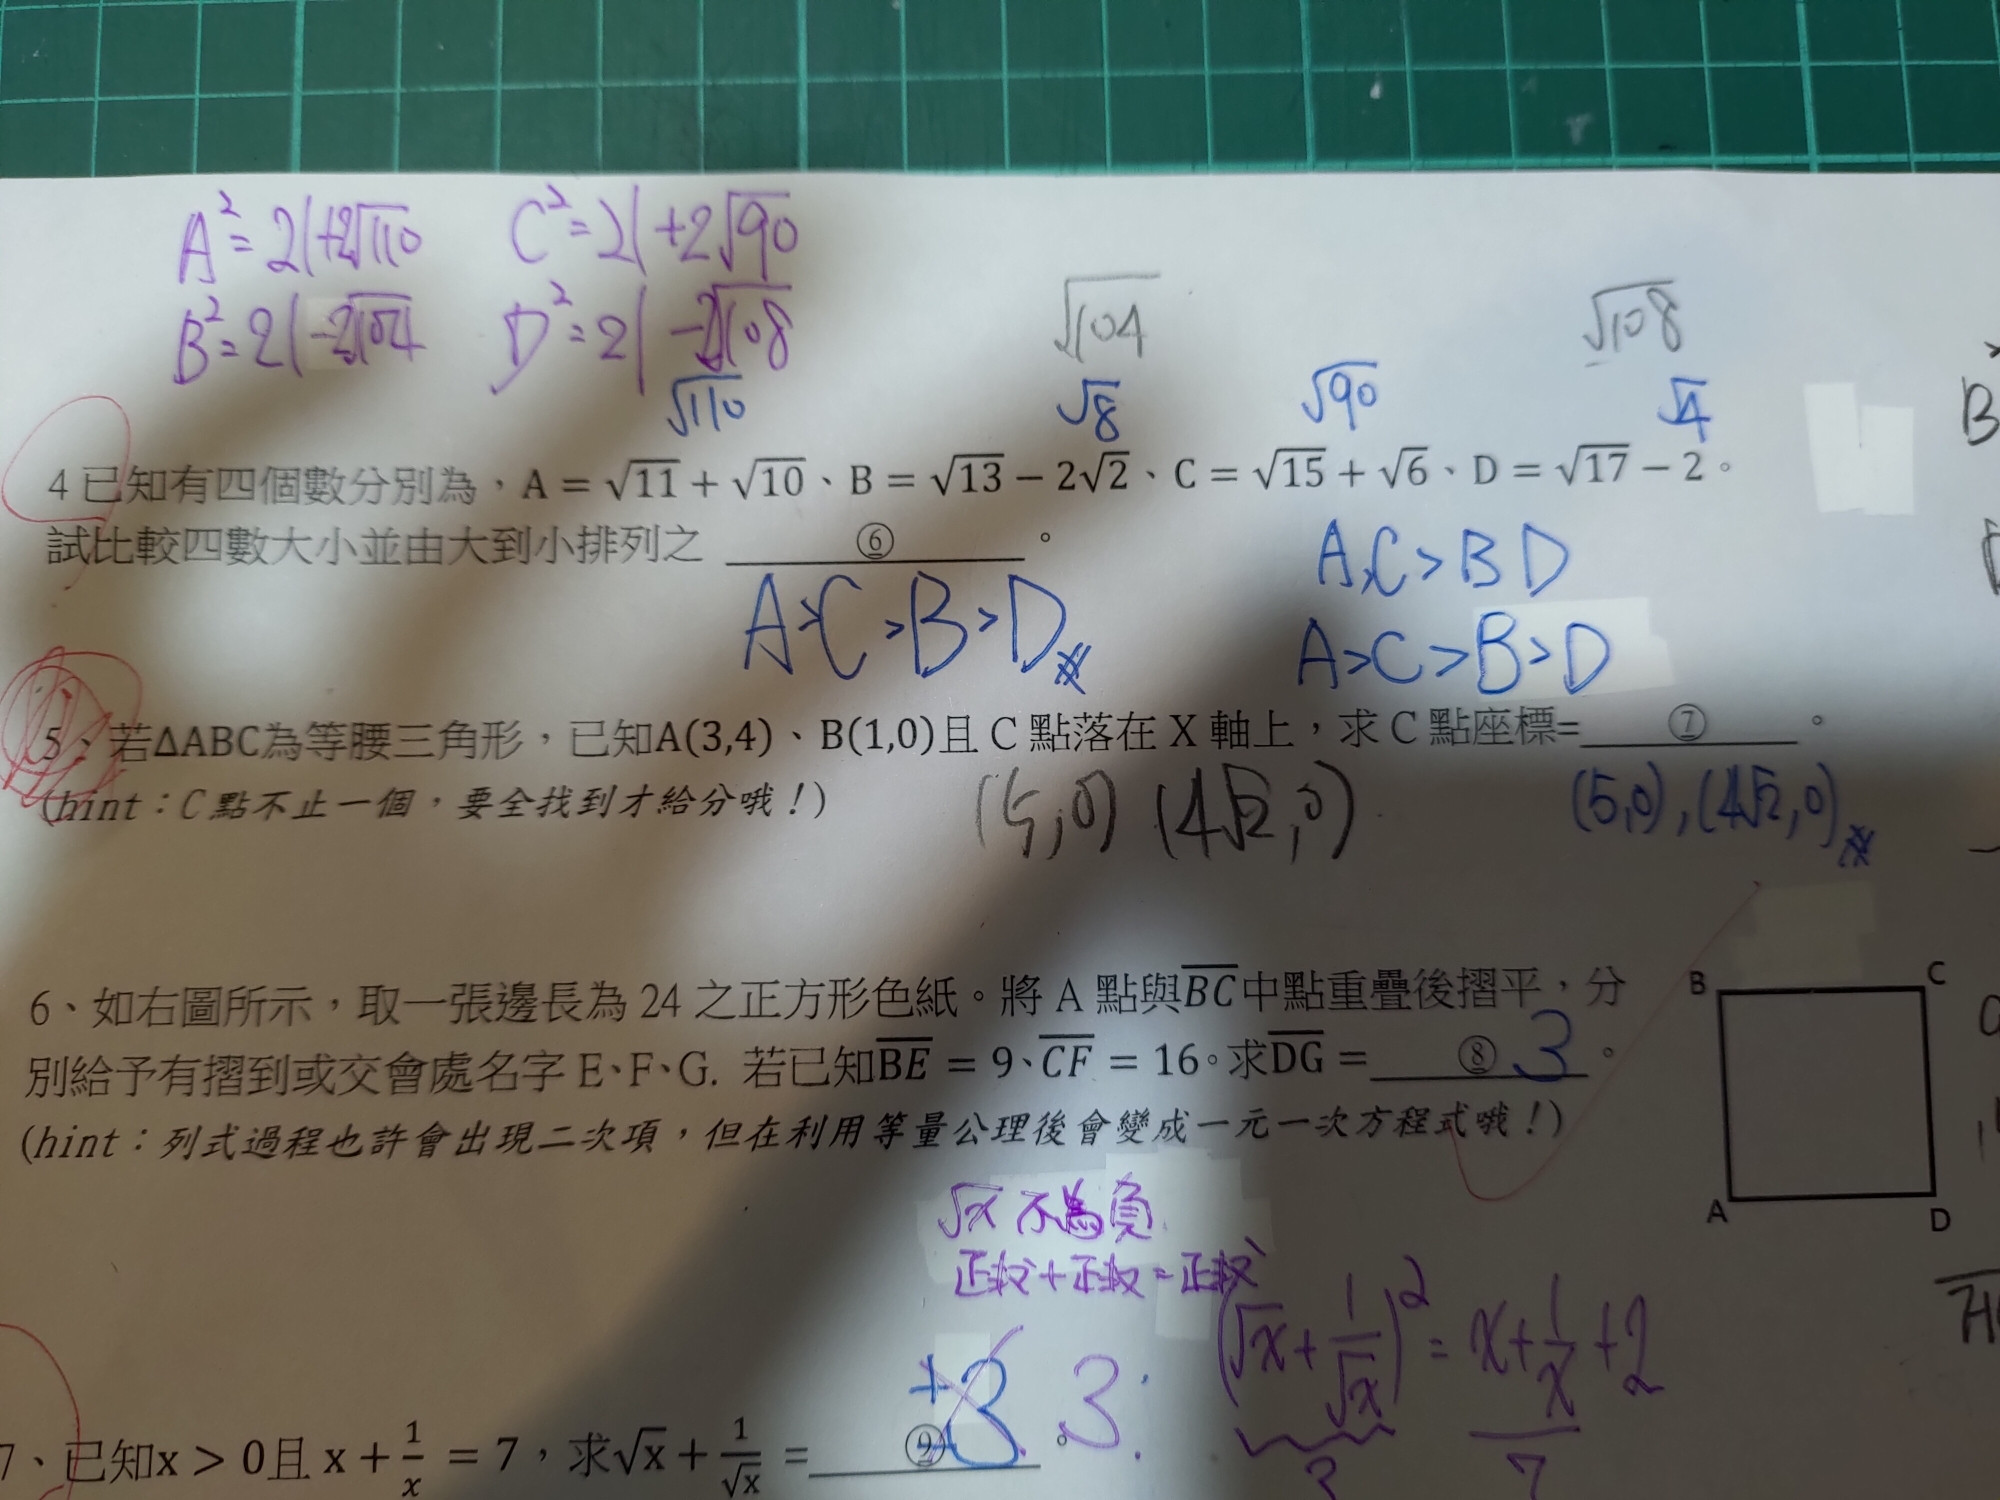 A² = 21+2√110 C² = 21+2√90
B² = 21-2√104 D² = 21-2√108
√104 √108
√110 √8 √90 √4
4 已知有四個數分別為，A = √11 + √10、B = √13 − 2√2、C = √15 + √6、D = √17 − 2。
試比較四數大小並由大到小排列之 ⑥ 。
A,C > B D
A>C>B>D
A>C>B>D
5、若ΔABC為等腰三角形，已知A(3,4)、B(1,0)且 C 點落在 X 軸上，求 C 點座標= ⑦ 。
(hint：C 點不止一個，要全找到才給分哦！)
(5,0) (4√2,0)
(5,0),(4√2,0)
6、如右圖所示，取一張邊長為 24 之正方形色紙。將 A 點與BC中點重疊後摺平，分
別給予有摺到或交會處名字 E、F、G. 若已知BE = 9、CF = 16。求DG = ⑧ 3 。
(hint：列式過程也許會出現二次項，但在利用等量公理後會變成一元一次方程式哦！)
B C
A D
√x 不為負
正数+正数=正数
(√x + 1/√x)² = x + 1/x + 2
7
±3 3
7、已知x > 0且 x + 1/x = 7，求√x + 1/√x = ⑨ 。
B